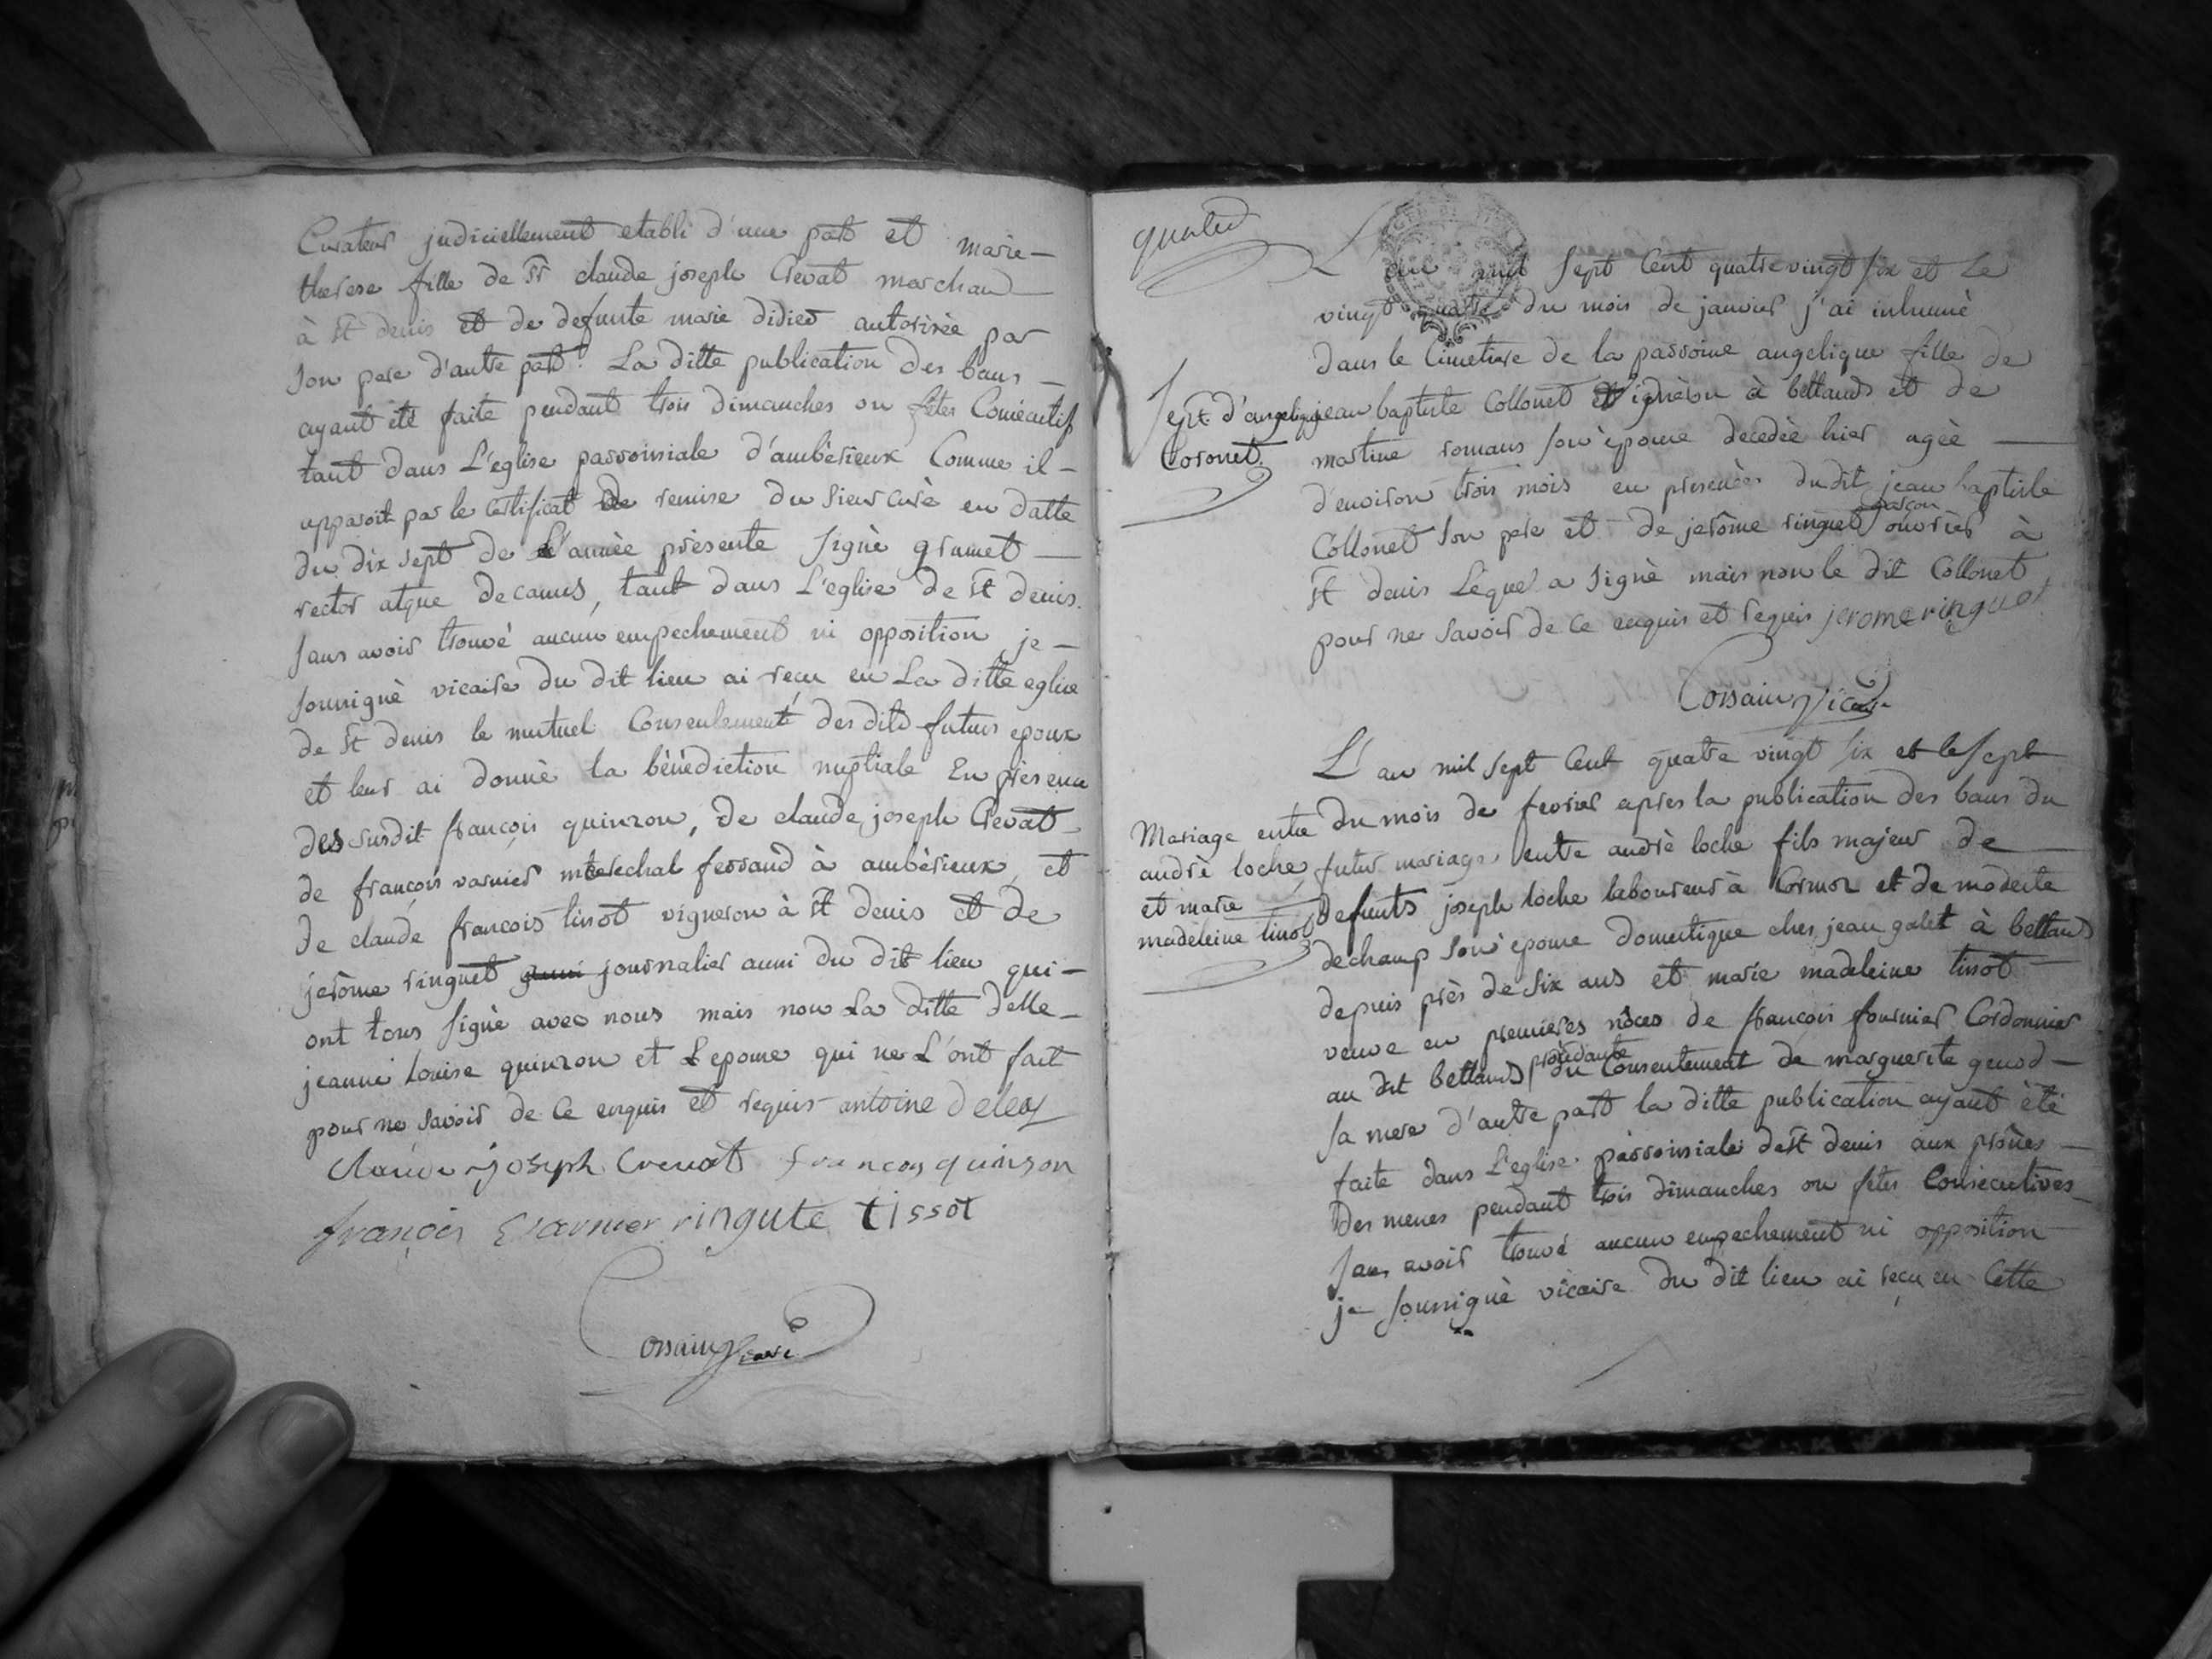 Curateur judiciellement etabli d'une part et marie-
therese fille de Sr claude joseph Crevat marchand
à St denis et de defunte marie didier autorisèe par
son pere d'autre part. La ditte publication des bans
ayant été faite pendant trois dimanches ou fêtes Consécutifs
tant dans L'eglise parroissiale d'ambèrieux Comme il
apparoit par le Certificat de remise du sieur curè en datte
du dix sept de L'annèe prèsente signè grumet
rector atque decanus, tant dans L'eglise de St denis.
sans avoir trouvè aucun empechement ni opposition je
soussignè vicaire du dit lieu ai recu en La ditte eglise
de St denis le mutuel Consentement des dits futurs epoux
et leur ai donnè la bènèdiction nuptiale En prèsence
des susdit françois quinson, de claude joseph Crevat
de françois varnier marechal ferrand à ambèrieux, et
de claude françois tissot vigneron à St denis et de
jerôme ringuet journalier aussi du dit lieu qui
ont tous signè avec nous mais non La ditte delle
jeanne Louise quinson et L'epouse qui ne L'ont fait
pour ne savoir de ce enquis et requis antoine
Claude joseph Crevat francois quinson
françois varnier ringute tissot
Corsain vicaire
quatre
L'an mil sept Cent quatre vingt six et le
vingt quatre du mois de janvier j'ai inhumè
dans le Cimetiere de la parroisse angelique fille de
Sept. d'angelique
Coronet
jean baptiste Collonet vignèron à bettand et de
martine romans son èpouse decedèe hier agèe
d'environ trois mois en presences dudit jean baptiste
Collonet son pere et de jerôme ringuet garçon ouvrier à
St denis Lequel a signè mais non le dit Collonet
pour ne savoir de ce enquis et requis jerome ringuet
Corsain vicaire
L'an mil sept Cent quatre vingt six et le sept
Mariage entre
andrè loche
et marie
madeleine tissot
du mois de fevrier apres la publication des bans du
futur mariage entre andrè loche fils majeur de
defunts joseph loche laboureur à Cormoz et de modeste
dechamp son èpouse domestique ches jean galet à bettand
depuis près de six ans et marie madeleine tissot
veuve en premieres nôces de françois fournier Cordonnier
au dit bettand, procèdante du Consentement de marguerite genod
sa mere d'autre part la ditte publication ayant ètè
faite dans L'eglise parroissiale de St denis aux prônes
des messes pendant trois dimanches ou fêtes Consècutives
sans avoir trouvè aucun empechement ni opposition
je soussignè vicaire du dit lieu ai recu en Cette